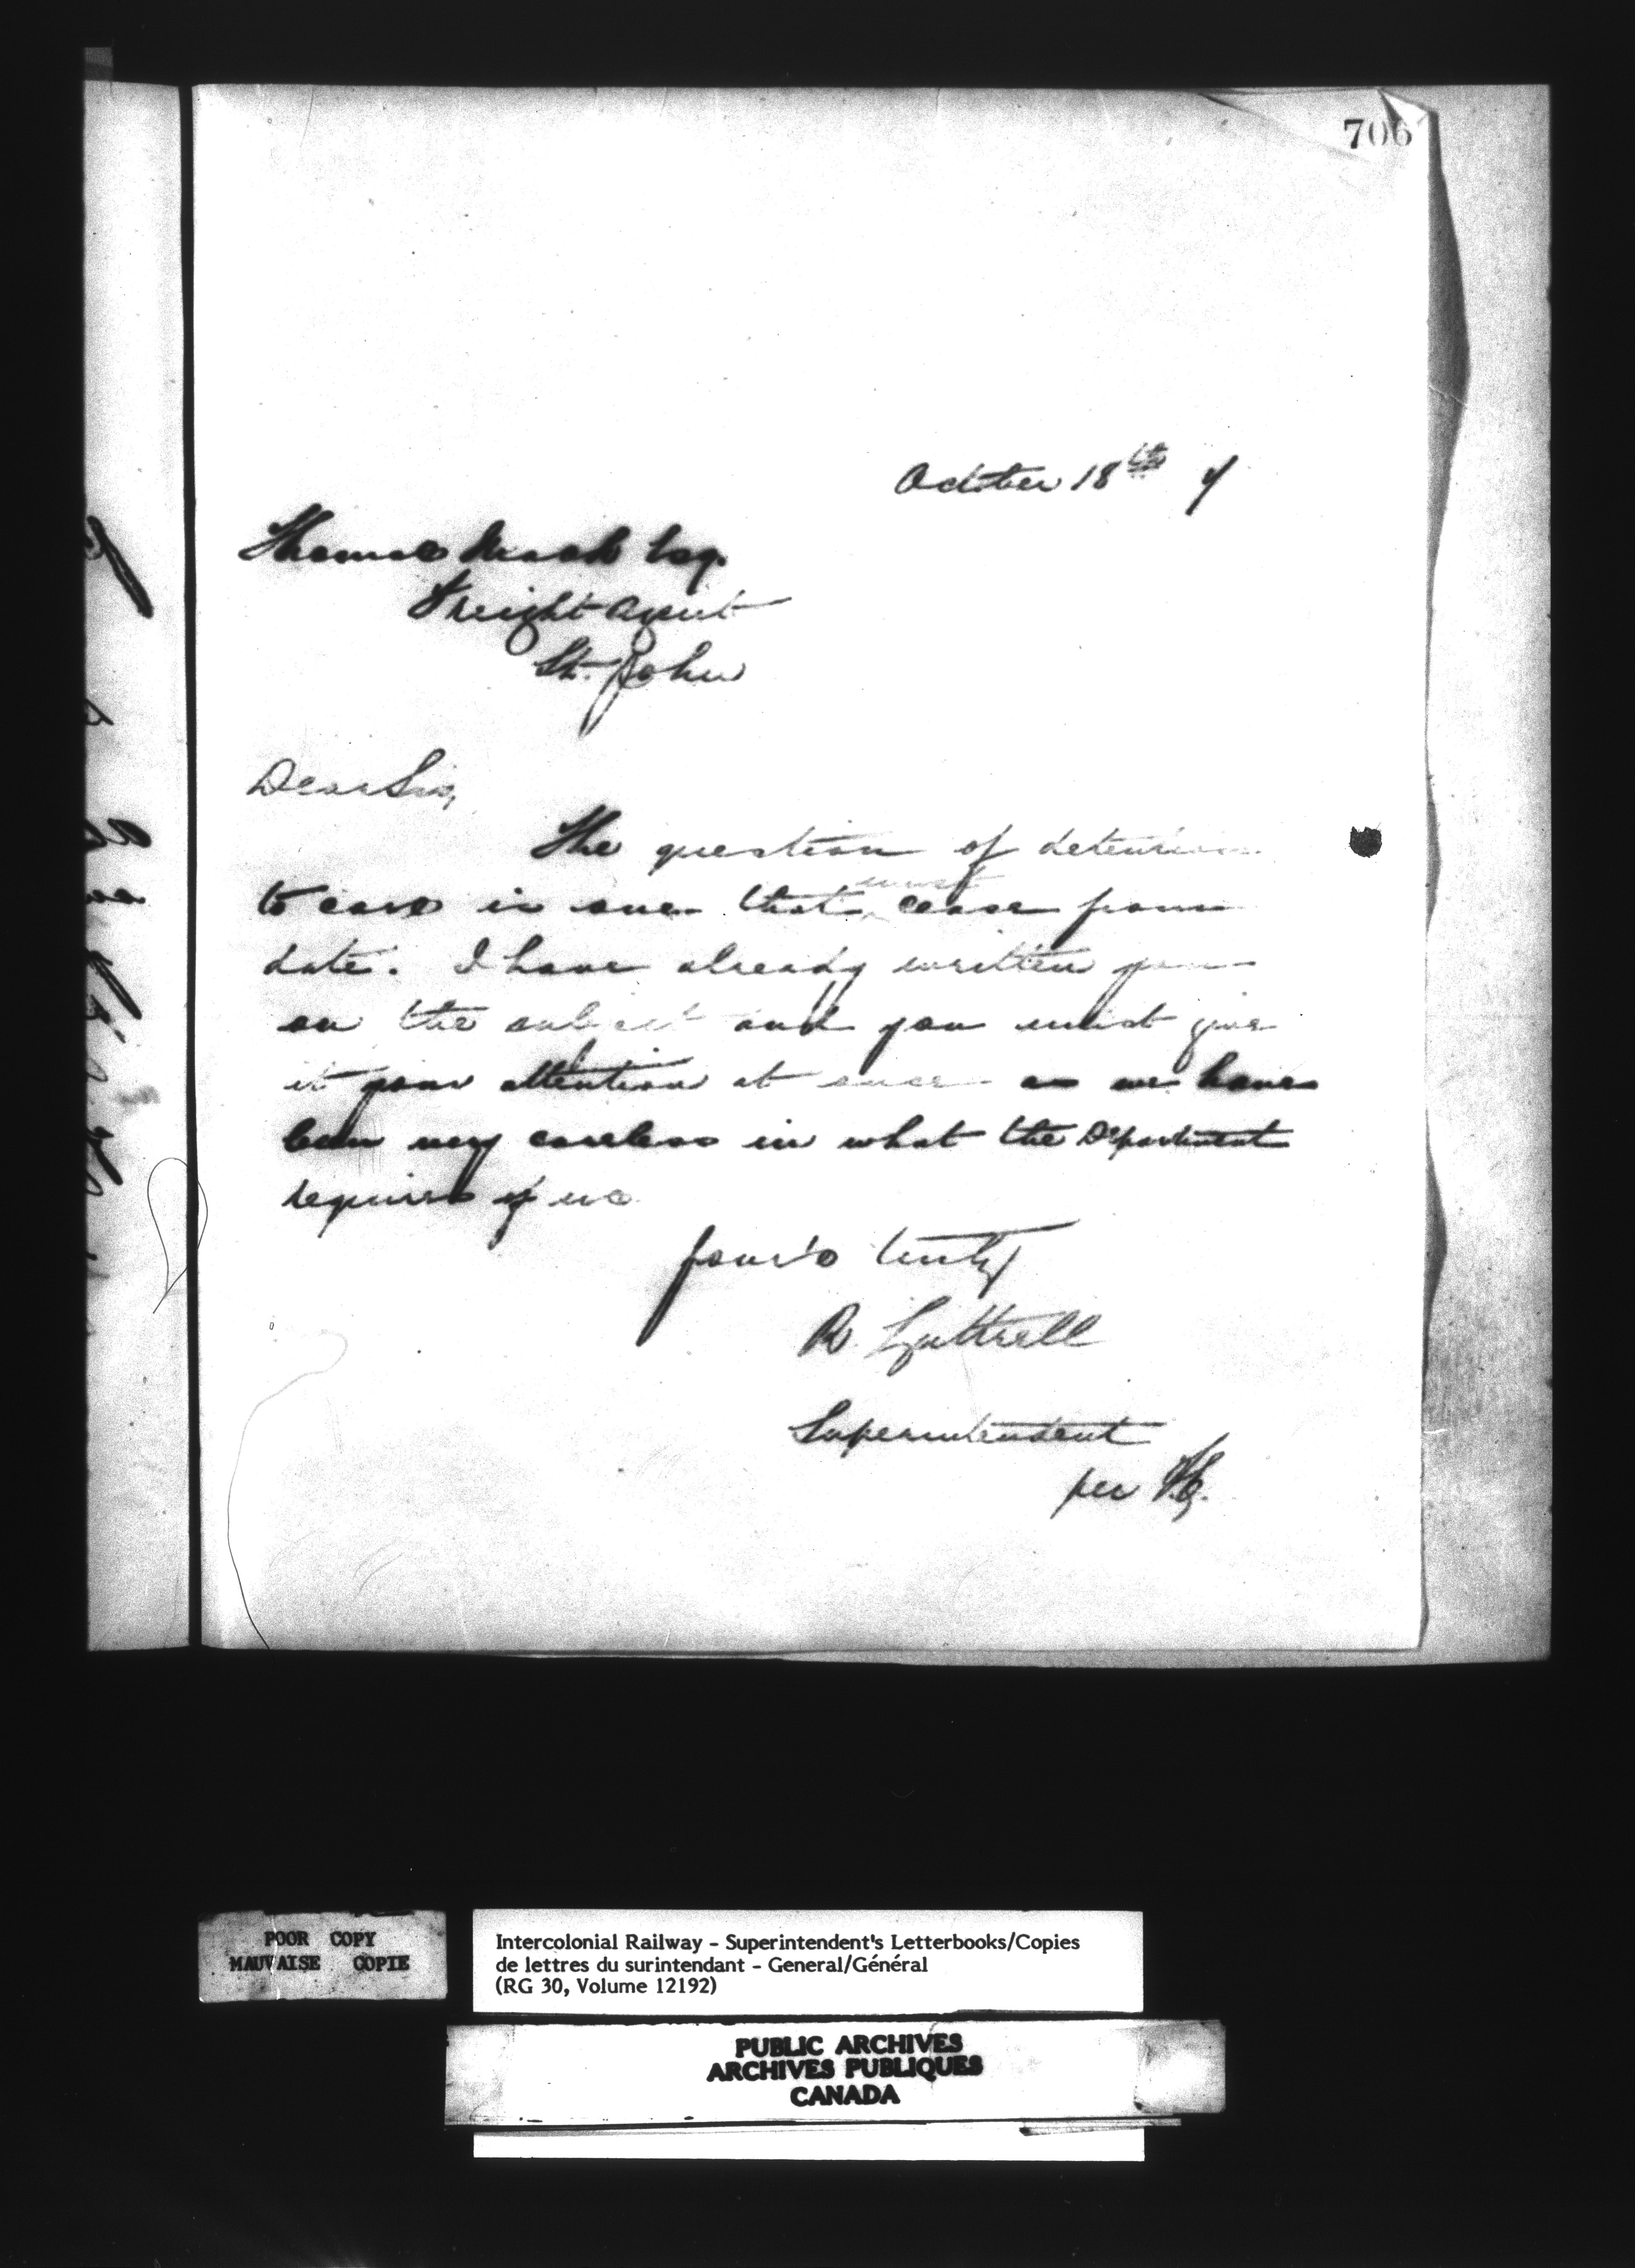 706
October 18th 7
Thomas Esq.
Freight Agent
St. John
Dear Sir,
The question of detention
to cars is one that must cease from
date. I have already written you
on the subject and you must give
it your attention at once as we have
been very careless in what the Department
requires of us
Your's truly
R. Luttrell
Superintendent
per
POOR COPY
MAUVAISE COPIE
Intercolonial Railway - Superintendent's Letterbooks/Copies
de lettres du surintendant - General/Général
(RG 30, Volume 12192)
PUBLIC ARCHIVES
ARCHIVES PUBLIQUES
CANADA